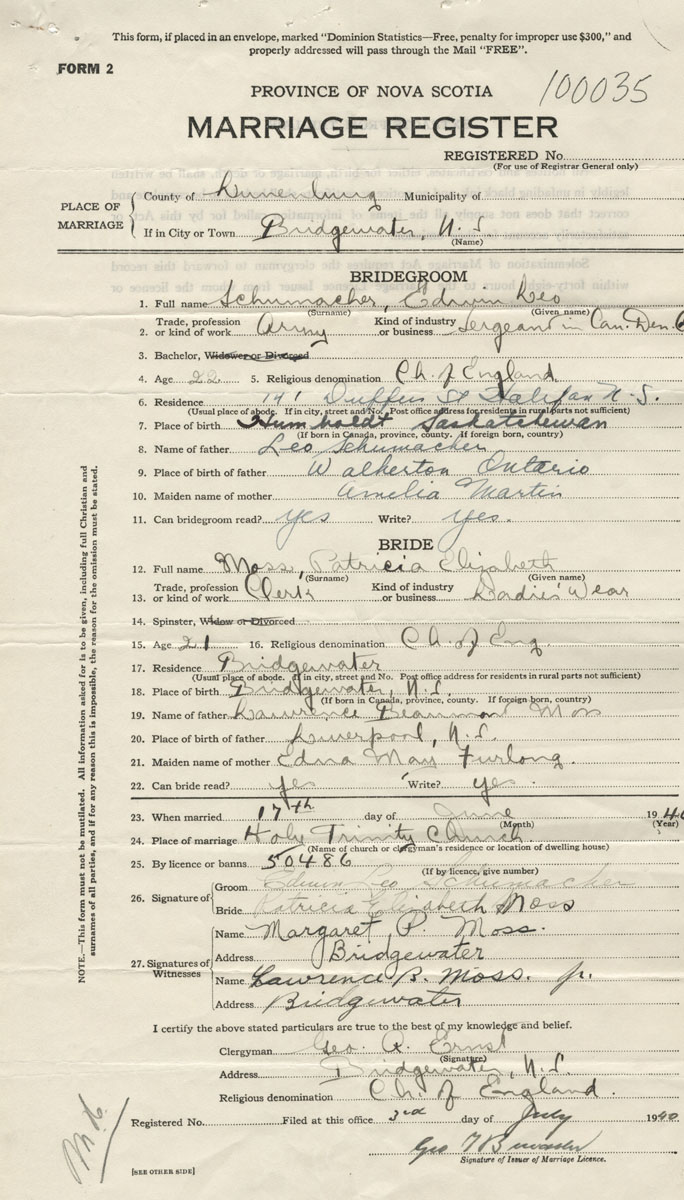 This form, if placed in an envelope, marked "Dominion Statistics—Free, penalty for improper use $300," and
properly addressed will pass through the Mail "FREE".
FORM 2
PROVINCE OF NOVA SCOTIA 100035
MARRIAGE REGISTER
REGISTERED No.
(For use of Registrar General only)
PLACE OF MARRIAGE
County of Lunenburg Municipality of
If in City or Town Bridgewater, N.S.
(Name)
BRIDEGROOM
1. Full name Schumacher, Edwin Leo
(Surname) (Given name)
2. Trade, profession or kind of work Army Kind of industry or business Sergeant in Can. Den. C
3. Bachelor, Widower or Divorced
4. Age 22 5. Religious denomination Ch. of England
6. Residence Duffus St Halifax N.S.
(Usual place of abode. If in city, street and No. Post office address for residents in rural parts not sufficient)
7. Place of birth Humboldt Saskatchewan
(If born in Canada, province, county. If foreign born, country)
8. Name of father Leo Schumacher
9. Place of birth of father Walkerton Ontario
10. Maiden name of mother Amelia Martin
11. Can bridegroom read? yes Write? yes.
BRIDE
12. Full name Moss, Patricia Elizabeth
(Surname) (Given name)
13. Trade, profession or kind of work Clerk Kind of industry or business Ladies' Wear
14. Spinster, Widow or Divorced
15. Age 21 16. Religious denomination Ch. of Eng.
17. Residence Bridgewater
(Usual place of abode. If in city, street and No. Post office address for residents in rural parts not sufficient)
18. Place of birth Bridgewater, N.S.
(If born in Canada, province, county. If foreign born, country)
19. Name of father Lawrence Beaumont Moss
20. Place of birth of father Liverpool, N.S.
21. Maiden name of mother Edna May Furlong.
22. Can bride read? yes Write? yes.
23. When married 17th day of June 1940
(Month) (Year)
24. Place of marriage Holy Trinity Church
(Name of church or clergyman's residence or location of dwelling house)
25. By licence or banns 50486
(If by licence, give number)
26. Signature of
Groom Edwin Leo Schumacher
Bride Patricia Elizabeth Moss
27. Signatures of Witnesses
Name Margaret P. Moss.
Address Bridgewater
Name Lawrence B. Moss. jr.
Address Bridgewater
I certify the above stated particulars are true to the best of my knowledge and belief.
Clergyman Geo. R. Ernst
(Signature)
Address Bridgewater, N.S.
Religious denomination Ch. of England.
Registered No. Filed at this office 3rd day of July 1940
Geo
Signature of Issuer of Marriage Licence.
[SEE OTHER SIDE]
NOTE.—This form must not be mutilated. All information asked for is to be given, including full Christian and
surnames of all parties, and if for any reason this is impossible, the reason for the omission must be stated.